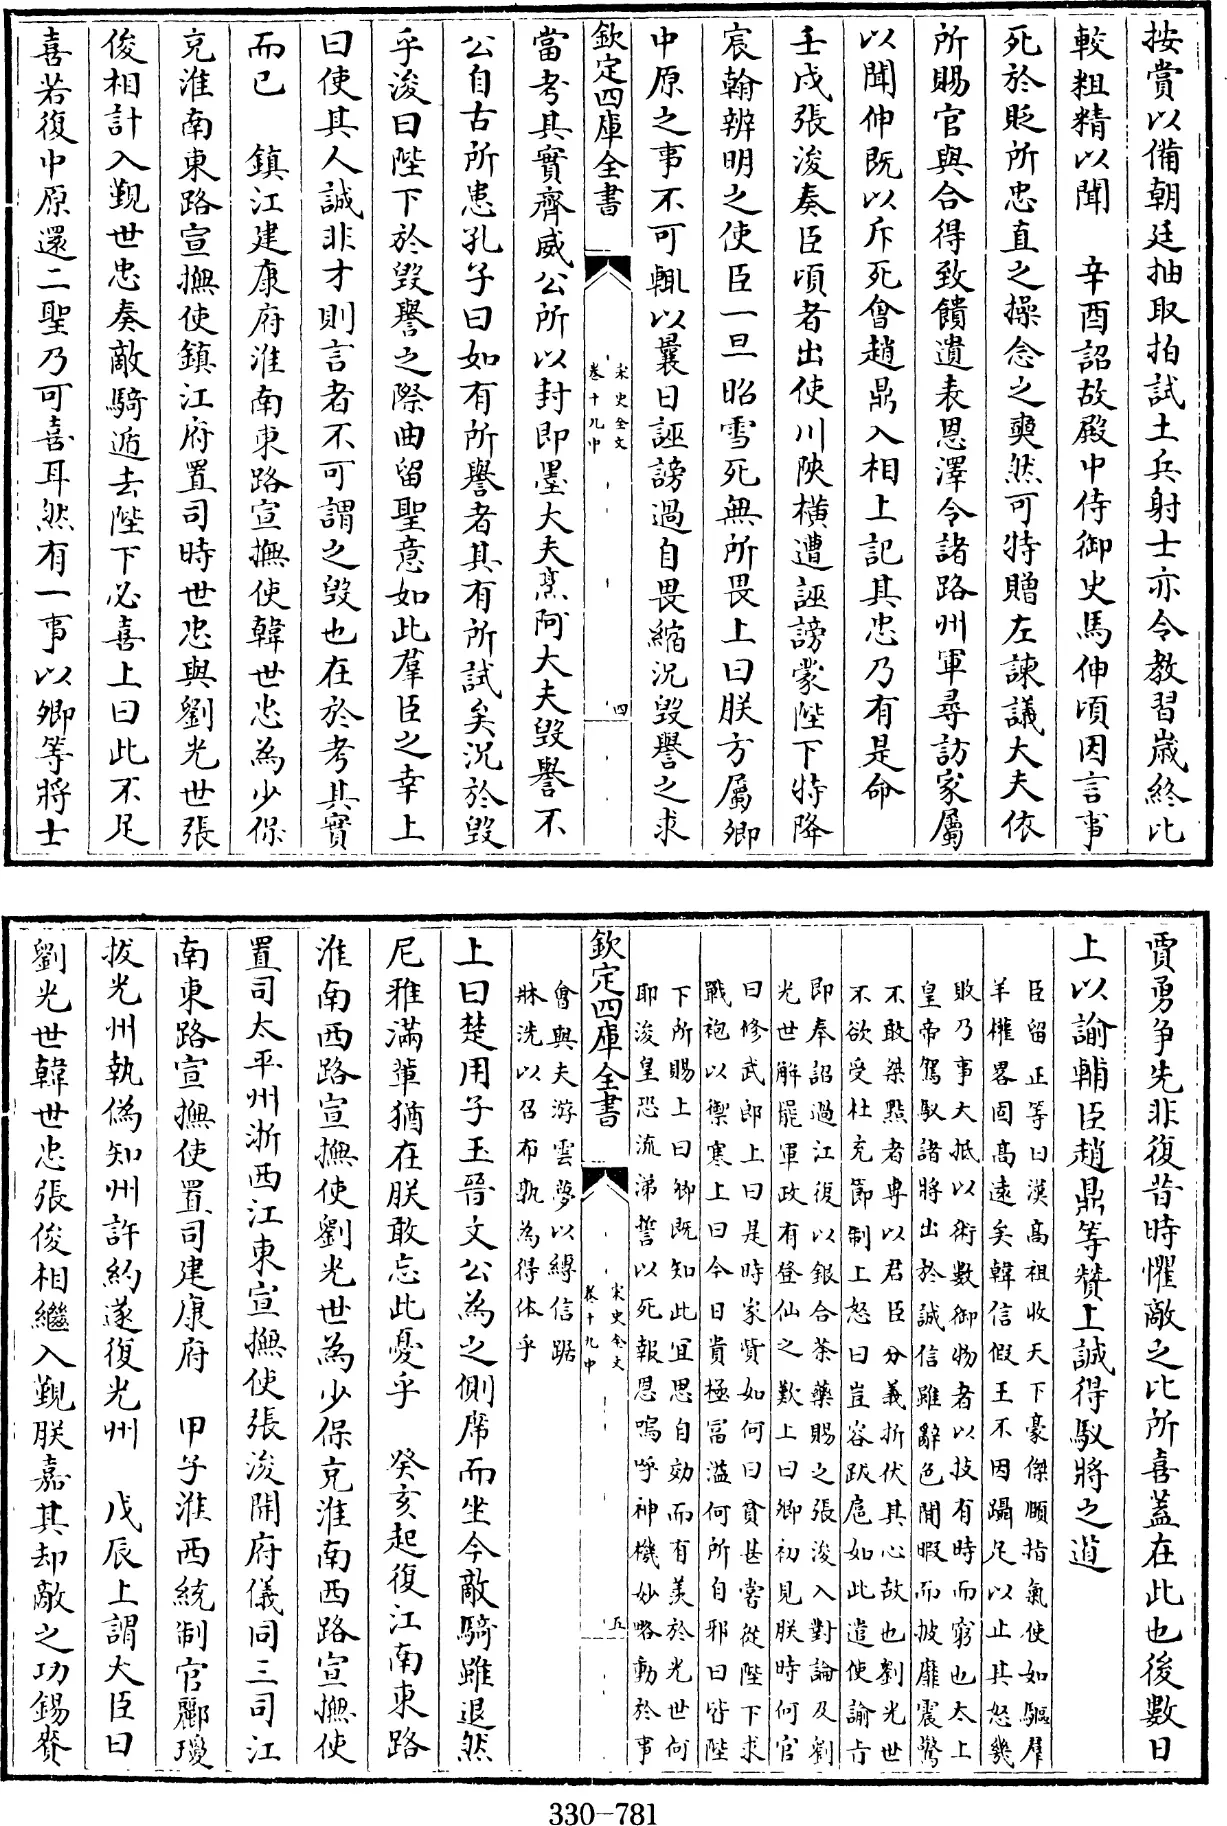 按賞以備朝廷抽取拍試土兵射士亦令教習歳終比
較粗精以聞　辛酉詔故殿中侍御史馬伸頃因言事
死於貶所忠直之操念之奭然可特贈左諫議大夫依
所賜官與合得致饋遺表恩澤令諸路州軍尋訪家屬
以聞伸既以斥死會趙鼎入相上記其忠乃有是命
壬戌張浚奏臣頃者出使川陜横遭誣謗蒙陛下特降
宸翰辨明之使臣一旦昭雪死無所畏上曰朕方屬卿
中原之事不可輒以曩日誣謗過自畏縮況毀譽之來
欽定四庫全書
宋史全文
卷十九中
四
當考其實齊威公所以封即墨大夫烹阿大夫毀譽不
公自古所患孔子曰如有所譽者其有所試矣況於毀
乎浚曰陛下於毀譽之際曲留聖意如此羣臣之幸上
曰使其人誠非才則言者不可謂之毀也在於考其實
而已　鎮江建康府淮南東路宣撫使韓世忠為少保
充淮南東路宣撫使鎮江府置司時世忠與劉光世張
俊相計入覲世忠奏敵騎遁去陛下必喜上曰此不足
喜若復中原還二聖乃可喜耳然有一事以卿等將士
賈勇争先非復昔時懼敵之比所喜蓋在此也後數日
上以諭輔臣趙鼎等贊上誠得馭將之道
臣留正等曰漢髙祖收天下豪傑頤指氣使如驅羣
羊權畧固髙遠矣韓信假王不因躡足以止其怒幾
敗乃事大抵以術數御物者以技有時而窮也太上
皇帝駕馭諸將出於誠信雖辭色閒暇而披靡震驚
不敢桀黠者専以君臣分義折伏其心故也劉光世
不欲受杜充節制上怒曰豈容跋扈如此遣使諭㫖
即奉詔過江復以銀合茶藥賜之張浚入對論及劉
光世解罷軍政有登仙之歎上曰卿初見朕時何官
曰修武郎上曰是時家貲如何曰貧甚嘗從陛下求
戰袍以禦寒上曰今日貴極富溢何所自邪曰皆陛
下所賜上曰卿既知此宜思自効而有羡於光世何
耶浚皇恐流涕誓以死報恩嗚呼神機妙略動於事
欽定四庫全書
宋史全文
卷十九中
五
會與夫游雲夢以縳信踞
牀洗以召布孰為得体乎
上曰楚用子玉晉文公為之側席而坐今敵騎雖退然
尼雅滿輩猶在朕敢忘此憂乎　癸亥起復江南東路
淮南西路宣撫使劉光世為少保充淮南西路宣撫使
置司太平州浙西江東宣撫使張浚開府儀同三司江
南東路宣撫使置司建康府　甲子淮西統制官酈瓊
拔光州執偽知州許約遂復光州　戊辰上謂大臣曰
劉光世韓世忠張俊相繼入覲朕嘉其却敵之功錫賚
330-781